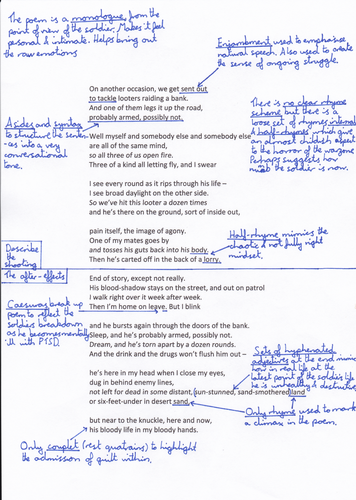 The poem is a monologue, from the
point of view of the soldier. Makes it feel
personal & intimate. Helps bring out
the raw emotions
Enjambment used to emphasise
natural speech. Also used to create
the sense of ongoing struggle.
On another occasion, we get sent out
to tackle looters raiding a bank.
And one of them legs it up the road,
probably armed, possibly not.
There is no clear rhyme
scheme but there is a
loose set of rhymes internal
& half-rhymes which give
an almost childish aspect
to the horror of the warzone
Perhaps suggests how
the soldier is now.
Asides and syntax
to structure the senten-
-ces into a very
conversational
tone.
Well myself and somebody else and somebody else
are all of the same mind,
so all three of us open fire.
Three of a kind all letting fly, and I swear
I see every round as it rips through his life –
I see broad daylight on the other side.
So we've hit this looter a dozen times
and he's there on the ground, sort of inside out,
pain itself, the image of agony.
One of my mates goes by
and tosses his guts back into his body.
Then he's carted off in the back of a lorry.
Half-rhyme mimics the
chaotic & not fully right
mindset.
Describe
the
shooting
The after-effects
End of story, except not really.
His blood-shadow stays on the street, and out on patrol
I walk right over it week after week.
Then I'm home on leave. But I blink
Caesuras break up
poem to reflect the
soldiers breakdown
as he becomes mentally
ill with PTSD.
and he bursts again through the doors of the bank.
Sleep, and he's probably armed, possibly not.
Dream, and he's torn apart by a dozen rounds.
And the drink and the drugs won't flush him out –
Sets of hyphenated
adjectives at the end mimic
how in real life at the
latest point of the soldier's life
he is unhealthy & destructive
he's here in my head when I close my eyes,
dug in behind enemy lines,
not left for dead in some distant, sun-stunned, sand-smothered land
or six-feet-under in desert sand,
Only rhyme used to mark
a climax in the poem.
but near to the knuckle, here and now,
his bloody life in my bloody hands.
Only couplet (rest quatrains) to highlight
the admission of guilt within.